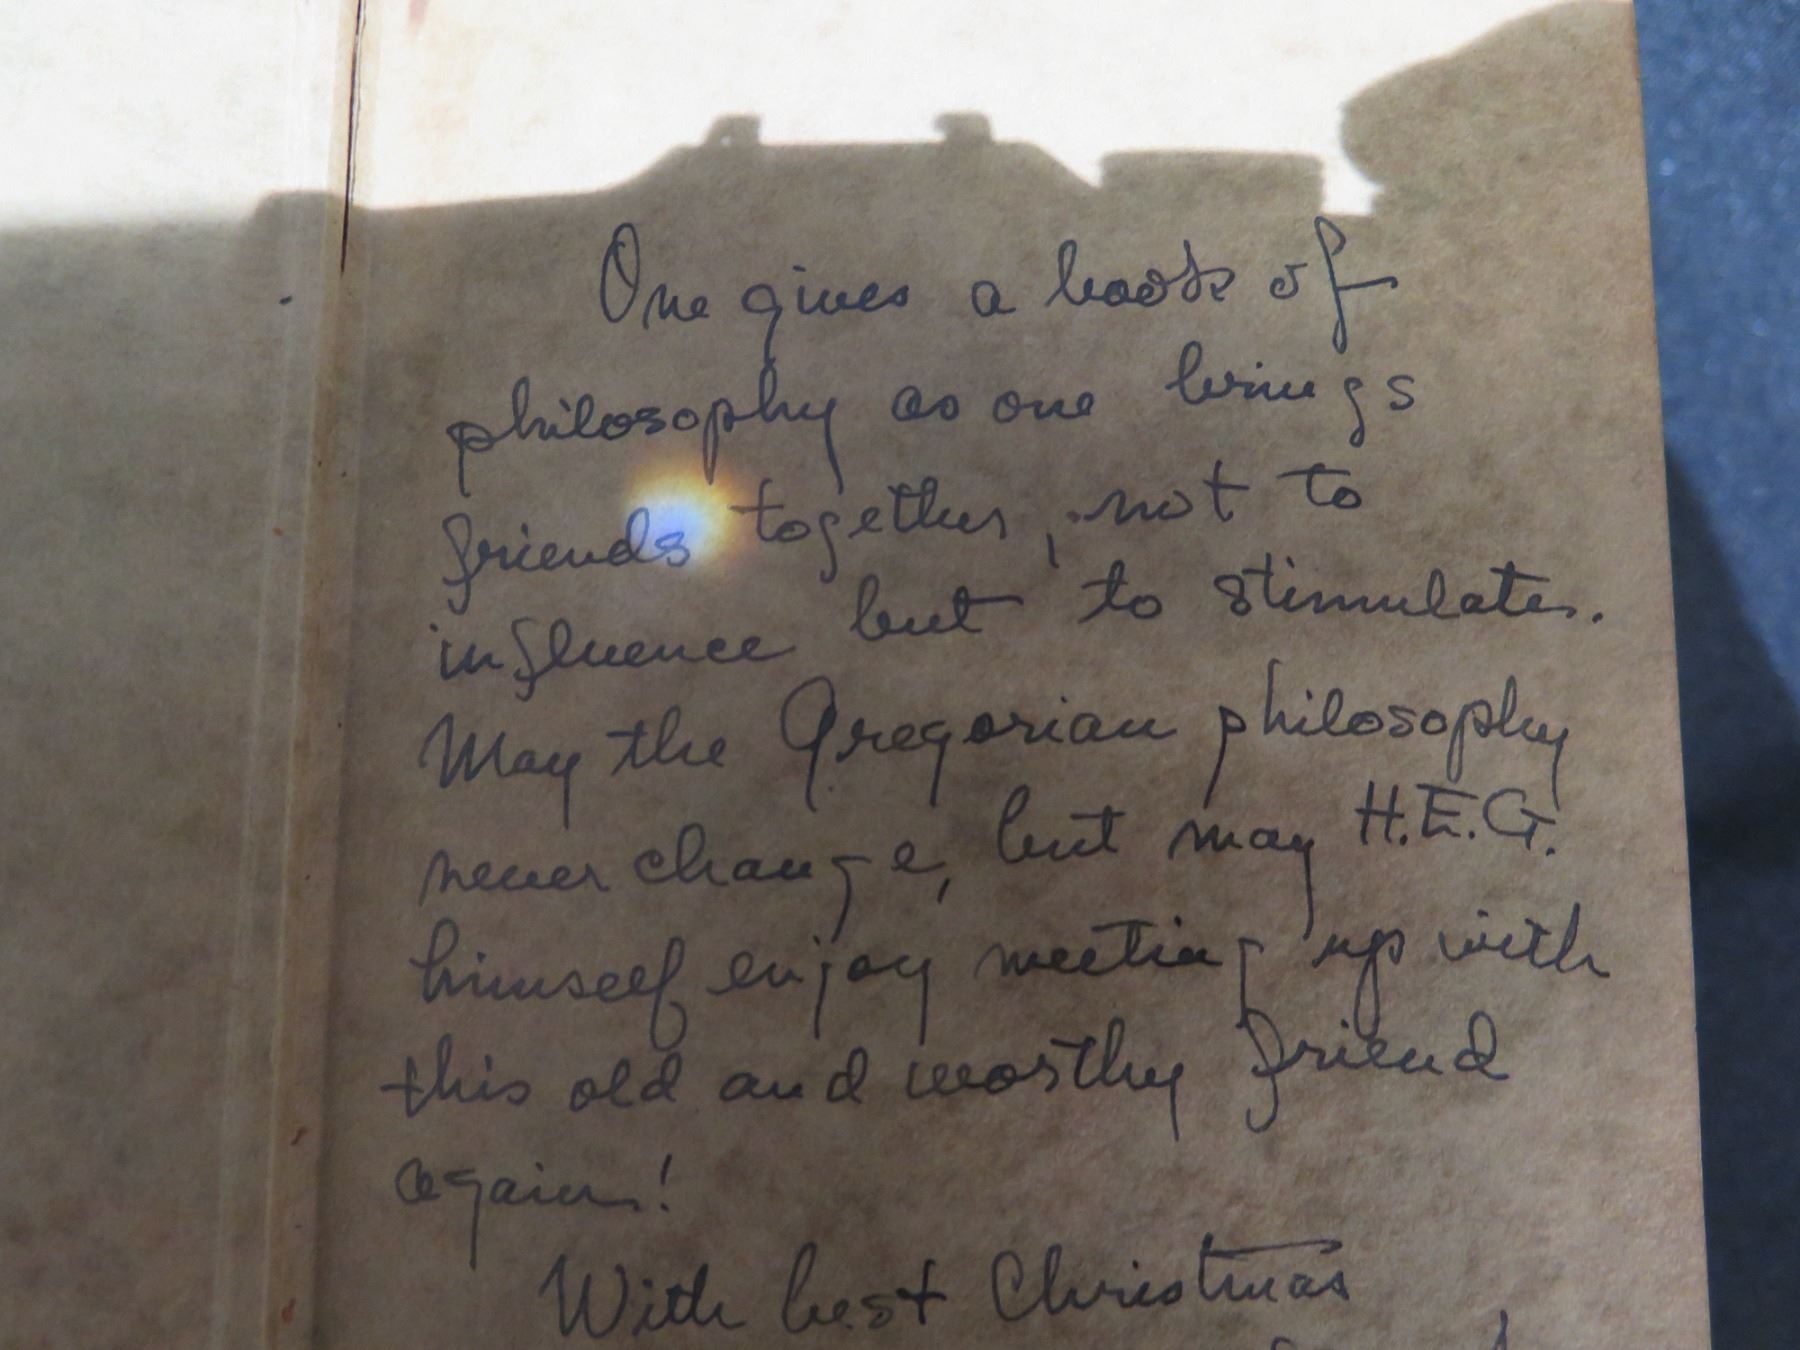 One gives a book of
philosophy as one brings
friends together, not to
influence but to stimulate.
May the Gregorian philosophy
never change, but may H.E.G.
himself enjoy meeting up with
this old and worthy friend
again!
With best Christmas